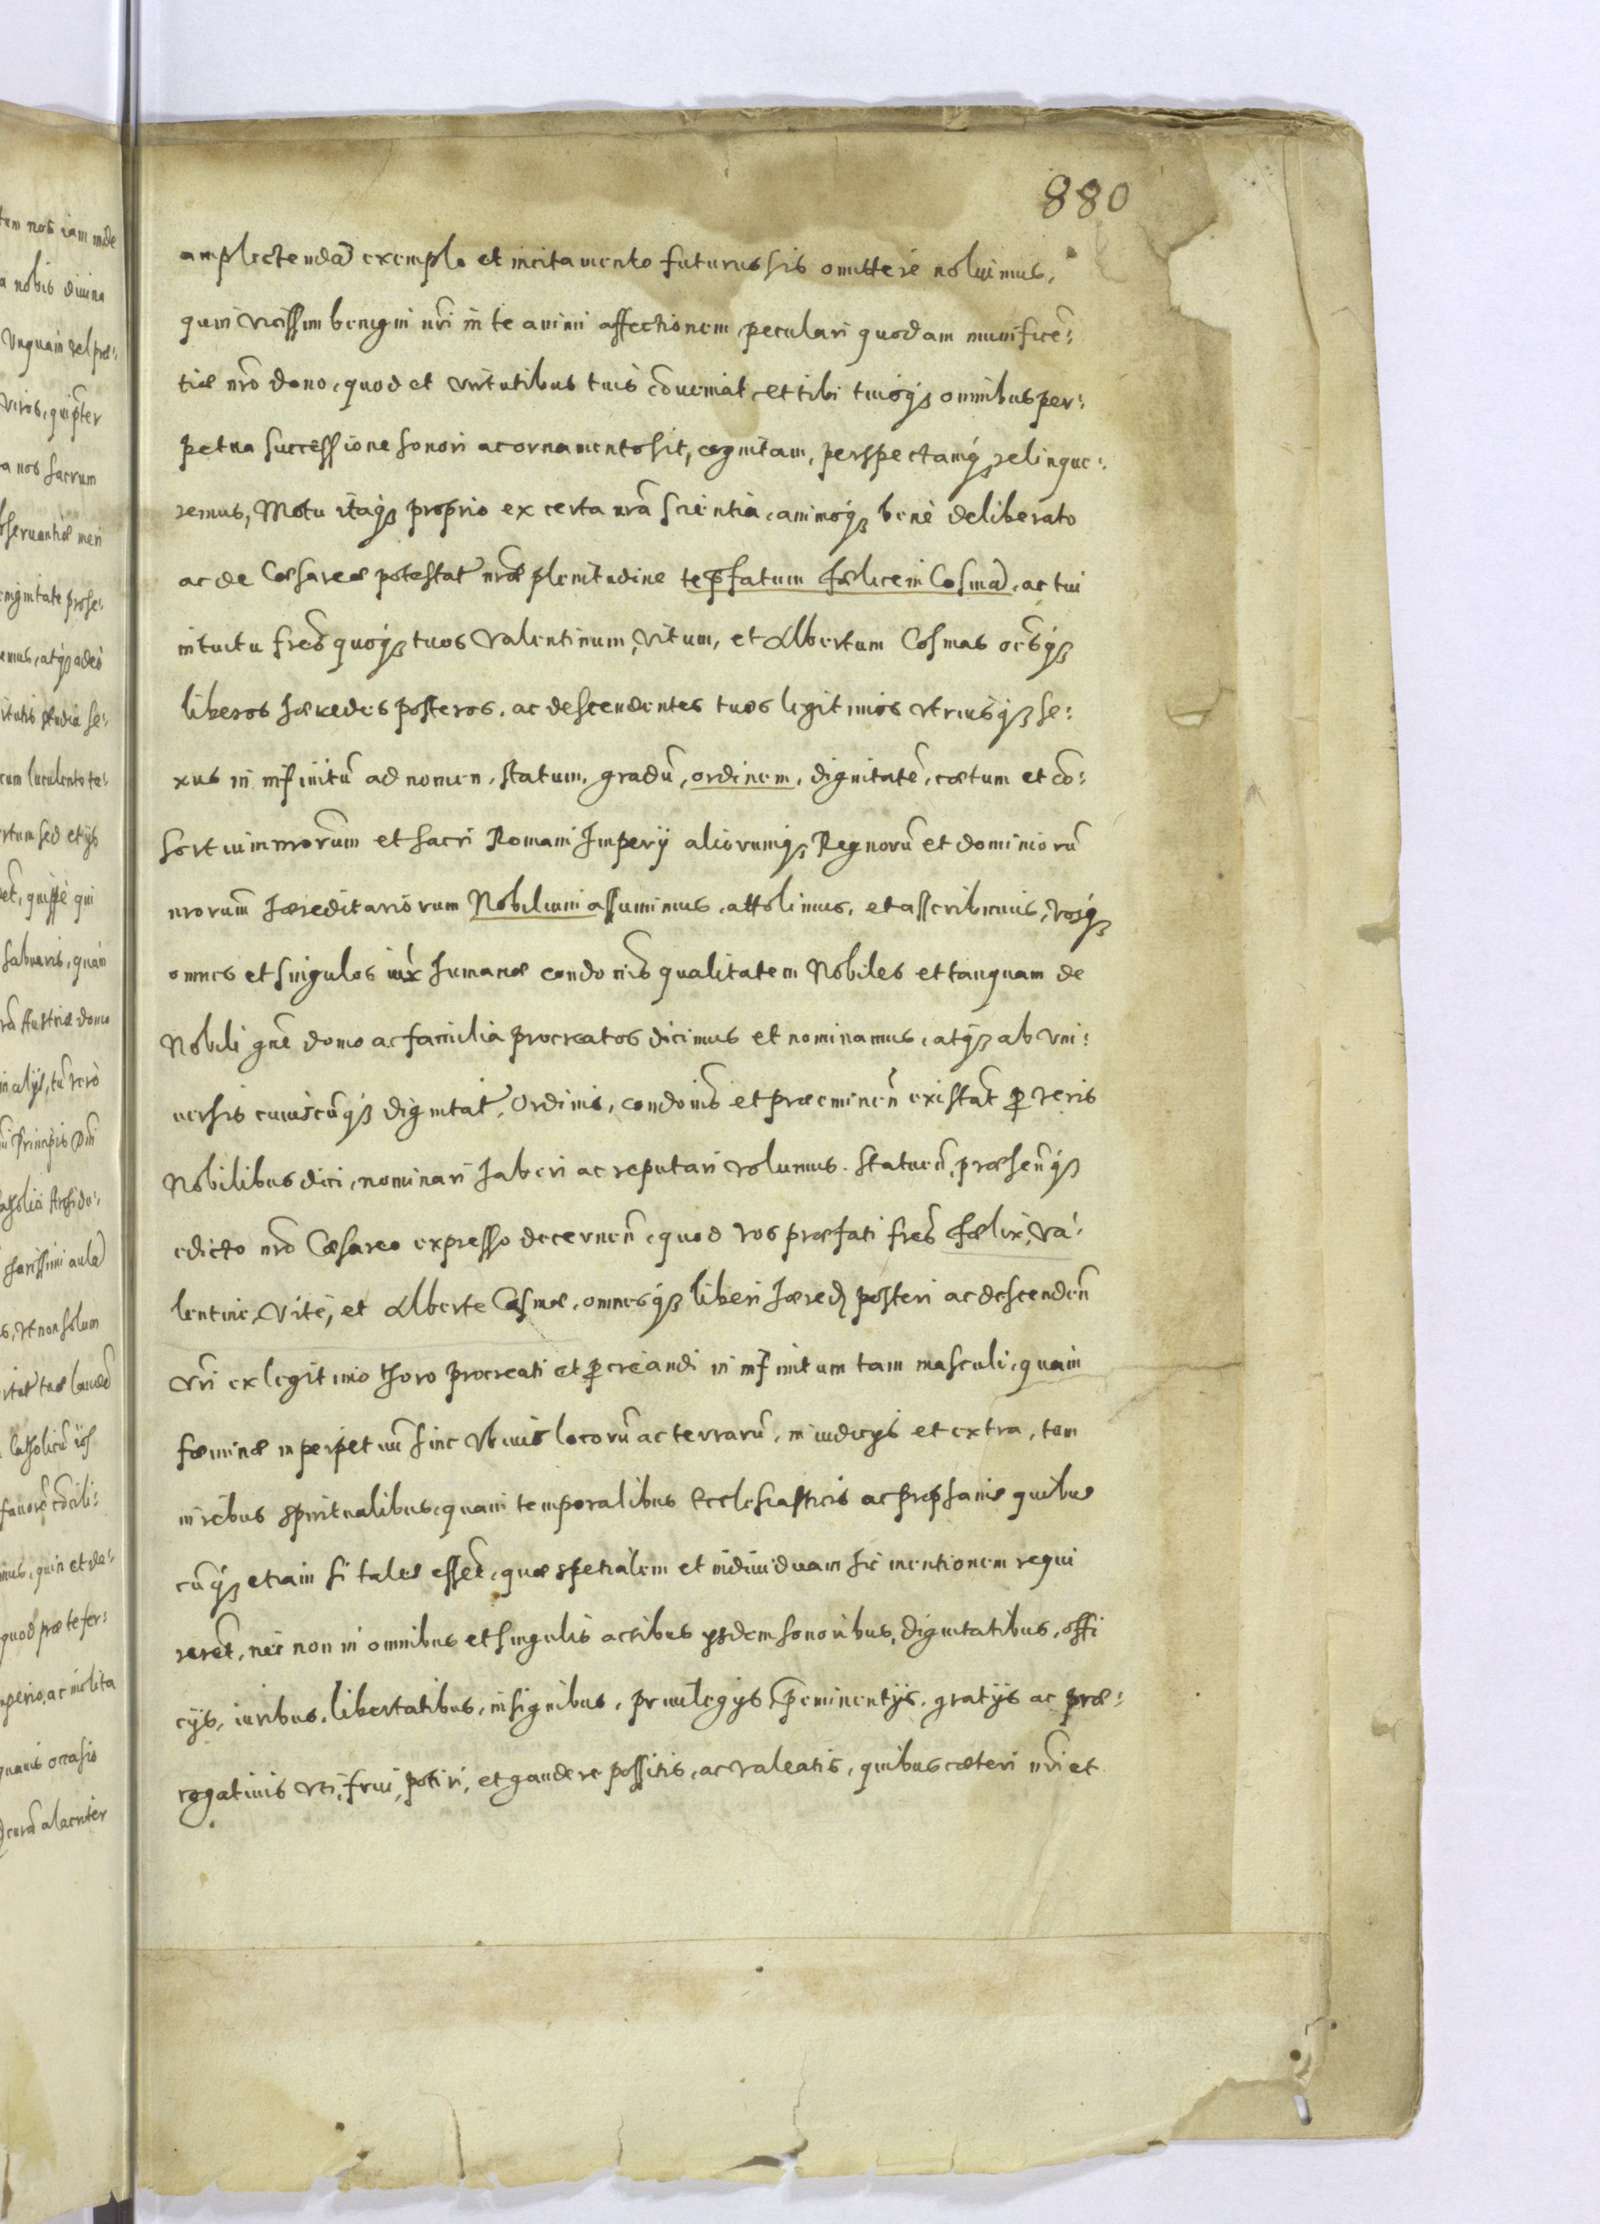 880
amplectendā exemplo et incitamento futurus sis omittere noluimus,
quin vicissim benigni nr̄i in te animi affectionem peculari quodam munificē:
tiæ nr̄o dono, quod et virtutibus tuis cōveniat, et tibi tuisq́ꝫ omnibus per:
petua successione honori ac ornamento sit, cognitam, perspectamq́ꝫ relinque:
remus, Motu itaq́ꝫ proprio ex certa nr̄a scientia, animoq́ꝫ benè deliberato
ac de Cæsareæ potestat̄ nr̄æ plenitudine te p̄fatum Fælicem Cosmā, ac tui
intuitu fre̅s quoq́ꝫ tuos Valentinum, Vitum, et Albertum Cosmas oēsq́ꝫ
liberos hæredes posteros, ac descendentes tuos legitimos utriusq́ꝫ se:
xus in infinitū ad nomen, statum, gradū, ordinem, dignitatē, cœtum et cō:
sortium nrorūm et sacri Romani Imperij aliorumq́ꝫ Regnorū et dominiorū
nrorūm hæreditariorum Nobilium assumimus, attolimus, et asscribimus, vosq́ꝫ
omnes et singulos iux̄ humanæ condonīs qualitatem Nobiles et tanquam de
Nobili gn̄e domo ac familia procreatos dicimus et nominamus, atq́ꝫ ab vni:
uersis cuiuscūq́ꝫ dignitat̄, Ordinis, condonīs et præeminēn existāt ꝓ veris
Nobilibus dici, nominari haberi ac reputari volumus. Statuen̄, præsenq̄́ꝫ
edicto nr̄o Cæsareo expresso decernen̄, quod vos præfati fre̅s Fælix, Va:
lentine, Vite, et Alberte Cosmæ, omnesq́ꝫ liberi hæred posteri ac descenden̄
vr̄i ex legitimo thoro procreati et ꝓcreandi in infinitum tam masculi, quam
fæminæ in perpetuū hinc vbiuis locorū ac terrarū, in iudicijs et extra, tam
in rebus spiritualibus, quam temporalibus Ecclesiasticis ac prophanis quibus
cūq́ꝫ etiam si tales essēt, quæ spetialem et indiuiduam hic mentionem requi
rerēt, nec non in omnibus et singulis actibus ysdem honoribus, dignitatibus, offi
cijs, iuribus, libertatibus, insignibus, priuilegijs, p̄eminentijs, gratijs ac præ:
rogatiuis vti, frui, potiri, et gaudere possitis, ac valeatis, quibus cæteri nr̄i et